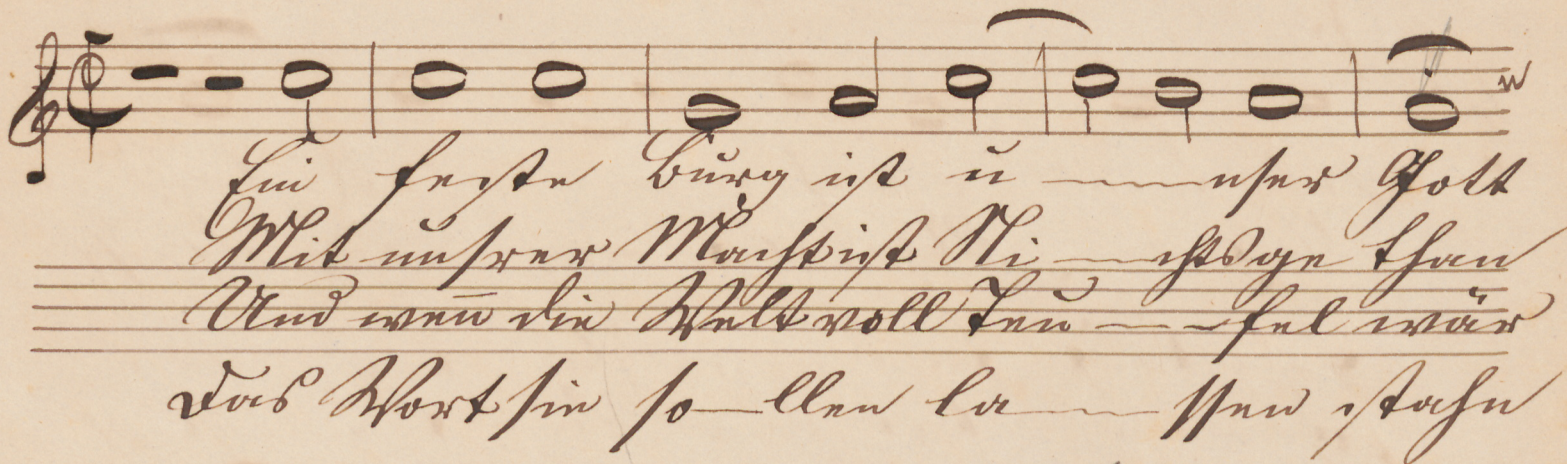 Ein feste Burg ist u---nser Gott
Mit unsrer Macht ist Ni---chts ge than
Und weñ die Welt voll Teu---fel wär
Das Wort sie so—llen la---ssen stahn